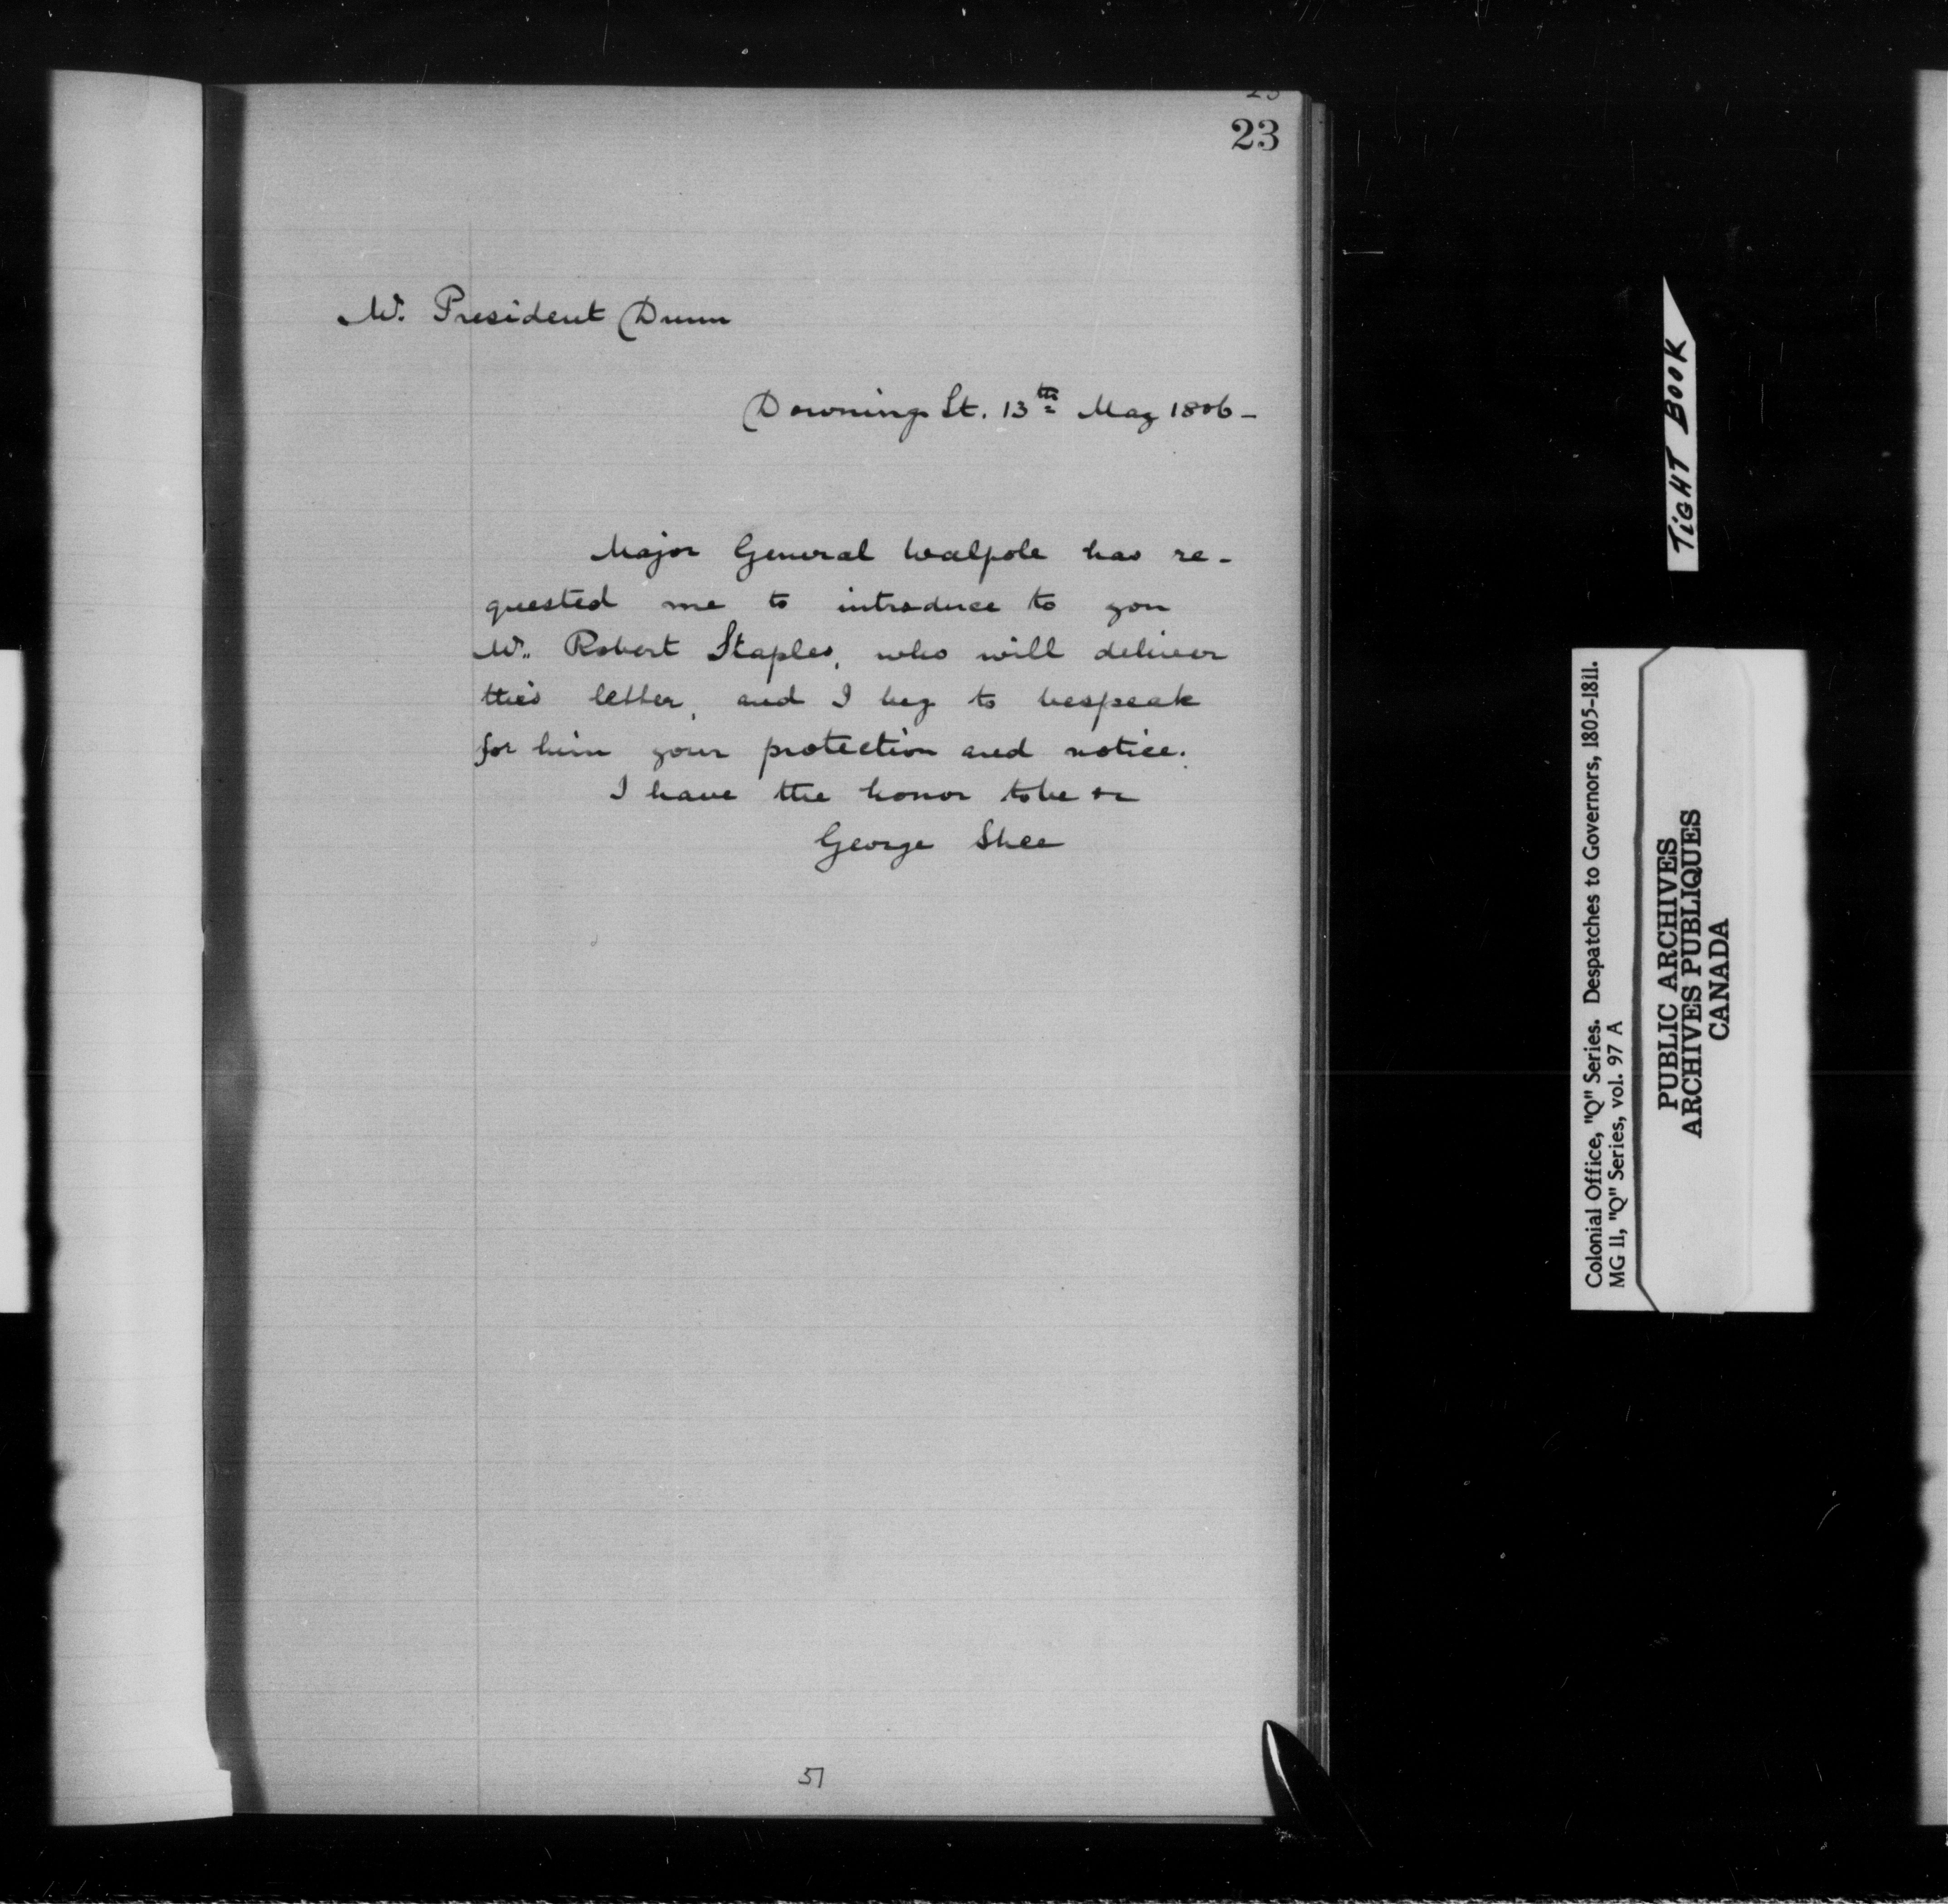 23
Mr. President Dunn
Downing St. 13th May 1806 -
Major General Walpole has re-
quested me to introduce to you
Mr. Robert Staples, who will deliver
this letter, and I beg to bespeak
for him your protection and notice.
I have the honor to be &c
George Shee
51
TiGHT BOOK
Colonial Office, "Q" Series. Despatches to Governors, 1805-1811.
MG 11, "Q" Series, vol. 97 A
PUBLIC ARCHIVES
ARCHIVES PUBLIQUES
CANADA